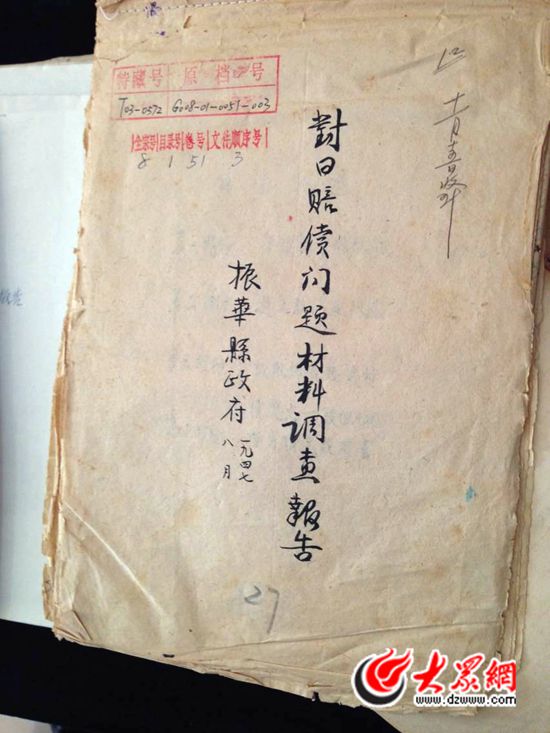 特藏号 原档号
T03-0572 G008-01-0051-003
全宗号 目录号 卷号 文件顺序号
8 1 51 3
十一月十五日收
對日賠償问题材料调查報告
振華縣政府
一九四七
八月
27
大眾網
www.dzwww.com